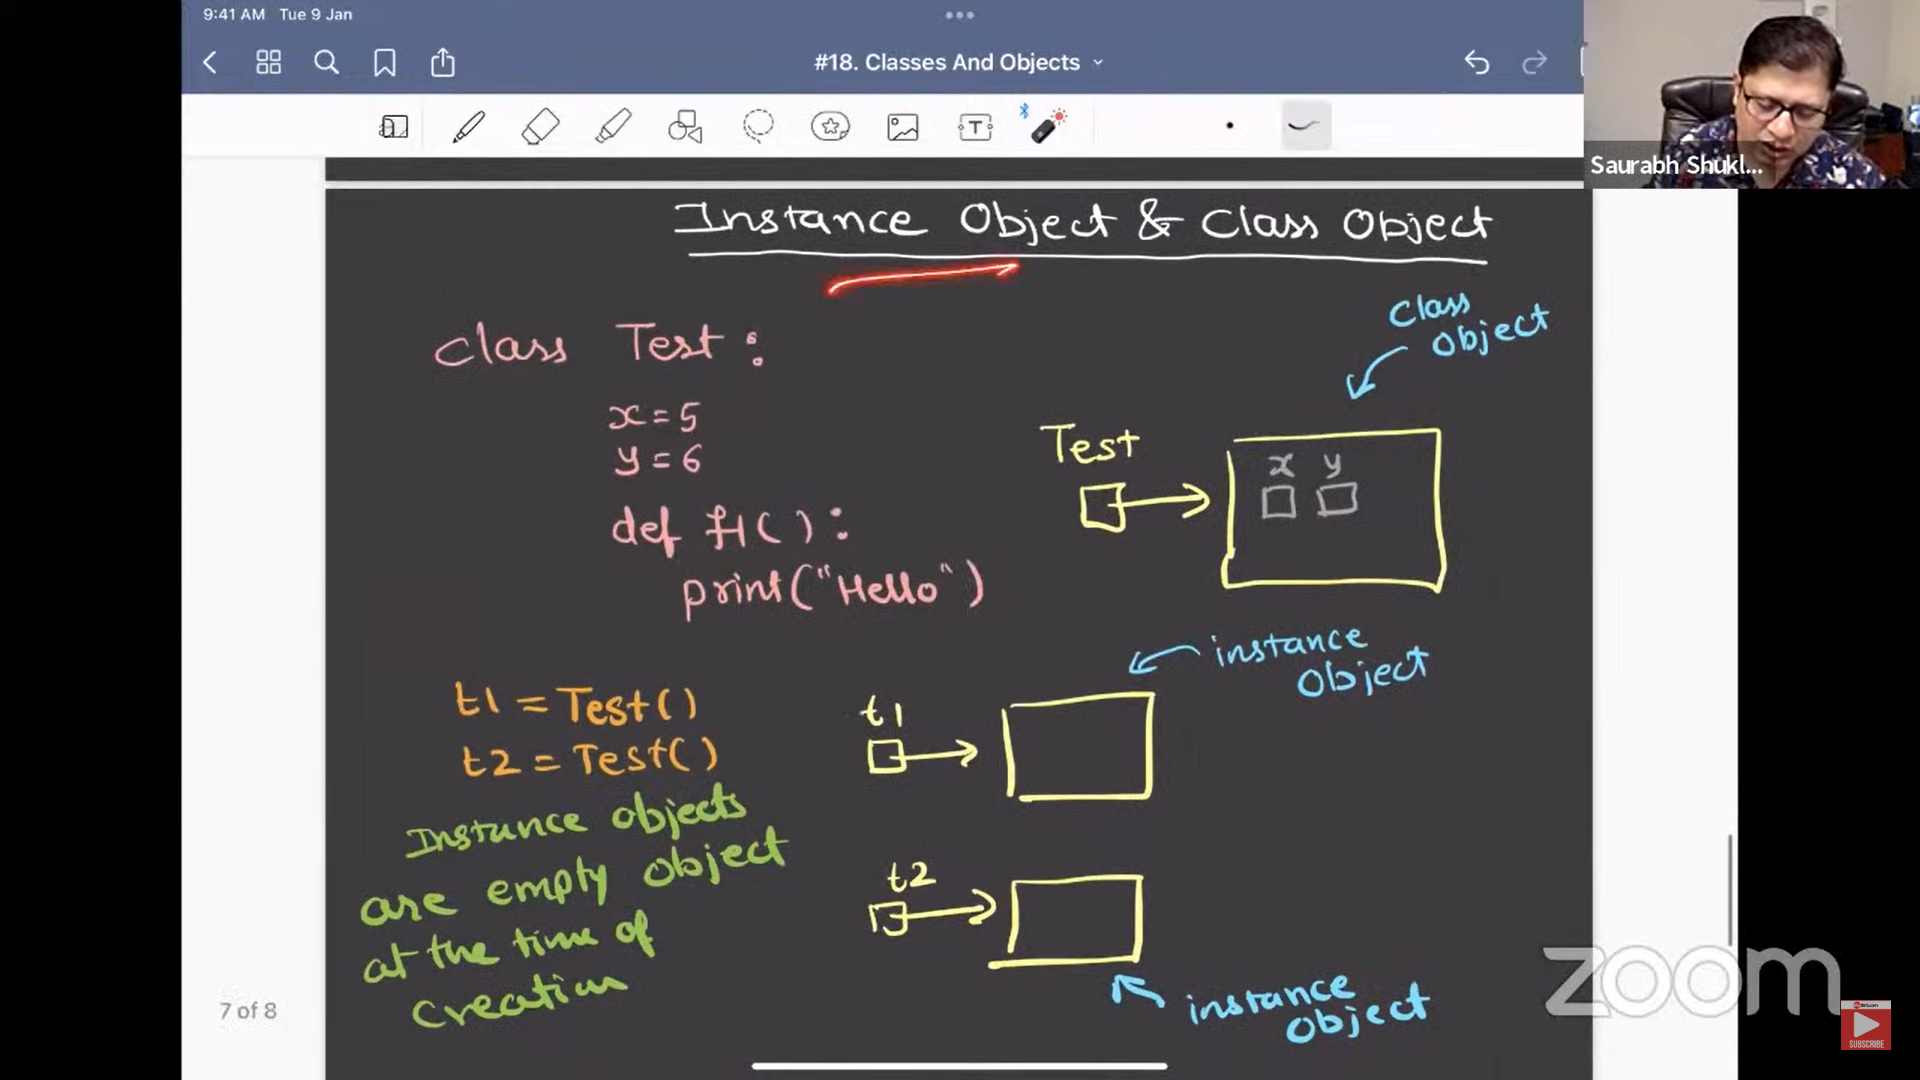 9:41 AM Tue 9 Jan
#18. Classes And Objects
T
Saurabh Shukl...
Instance Object & Class Object
Class
Object
class Test:
x=5
y=6
def f1():
print("Hello")
Test
x y
instance
object
t1 = Test()
t2 = Test()
t1
Instance objects
are empty object
at the time of
creation
t2
instance
object
7 of 8
zoom
SUBSCRIBE